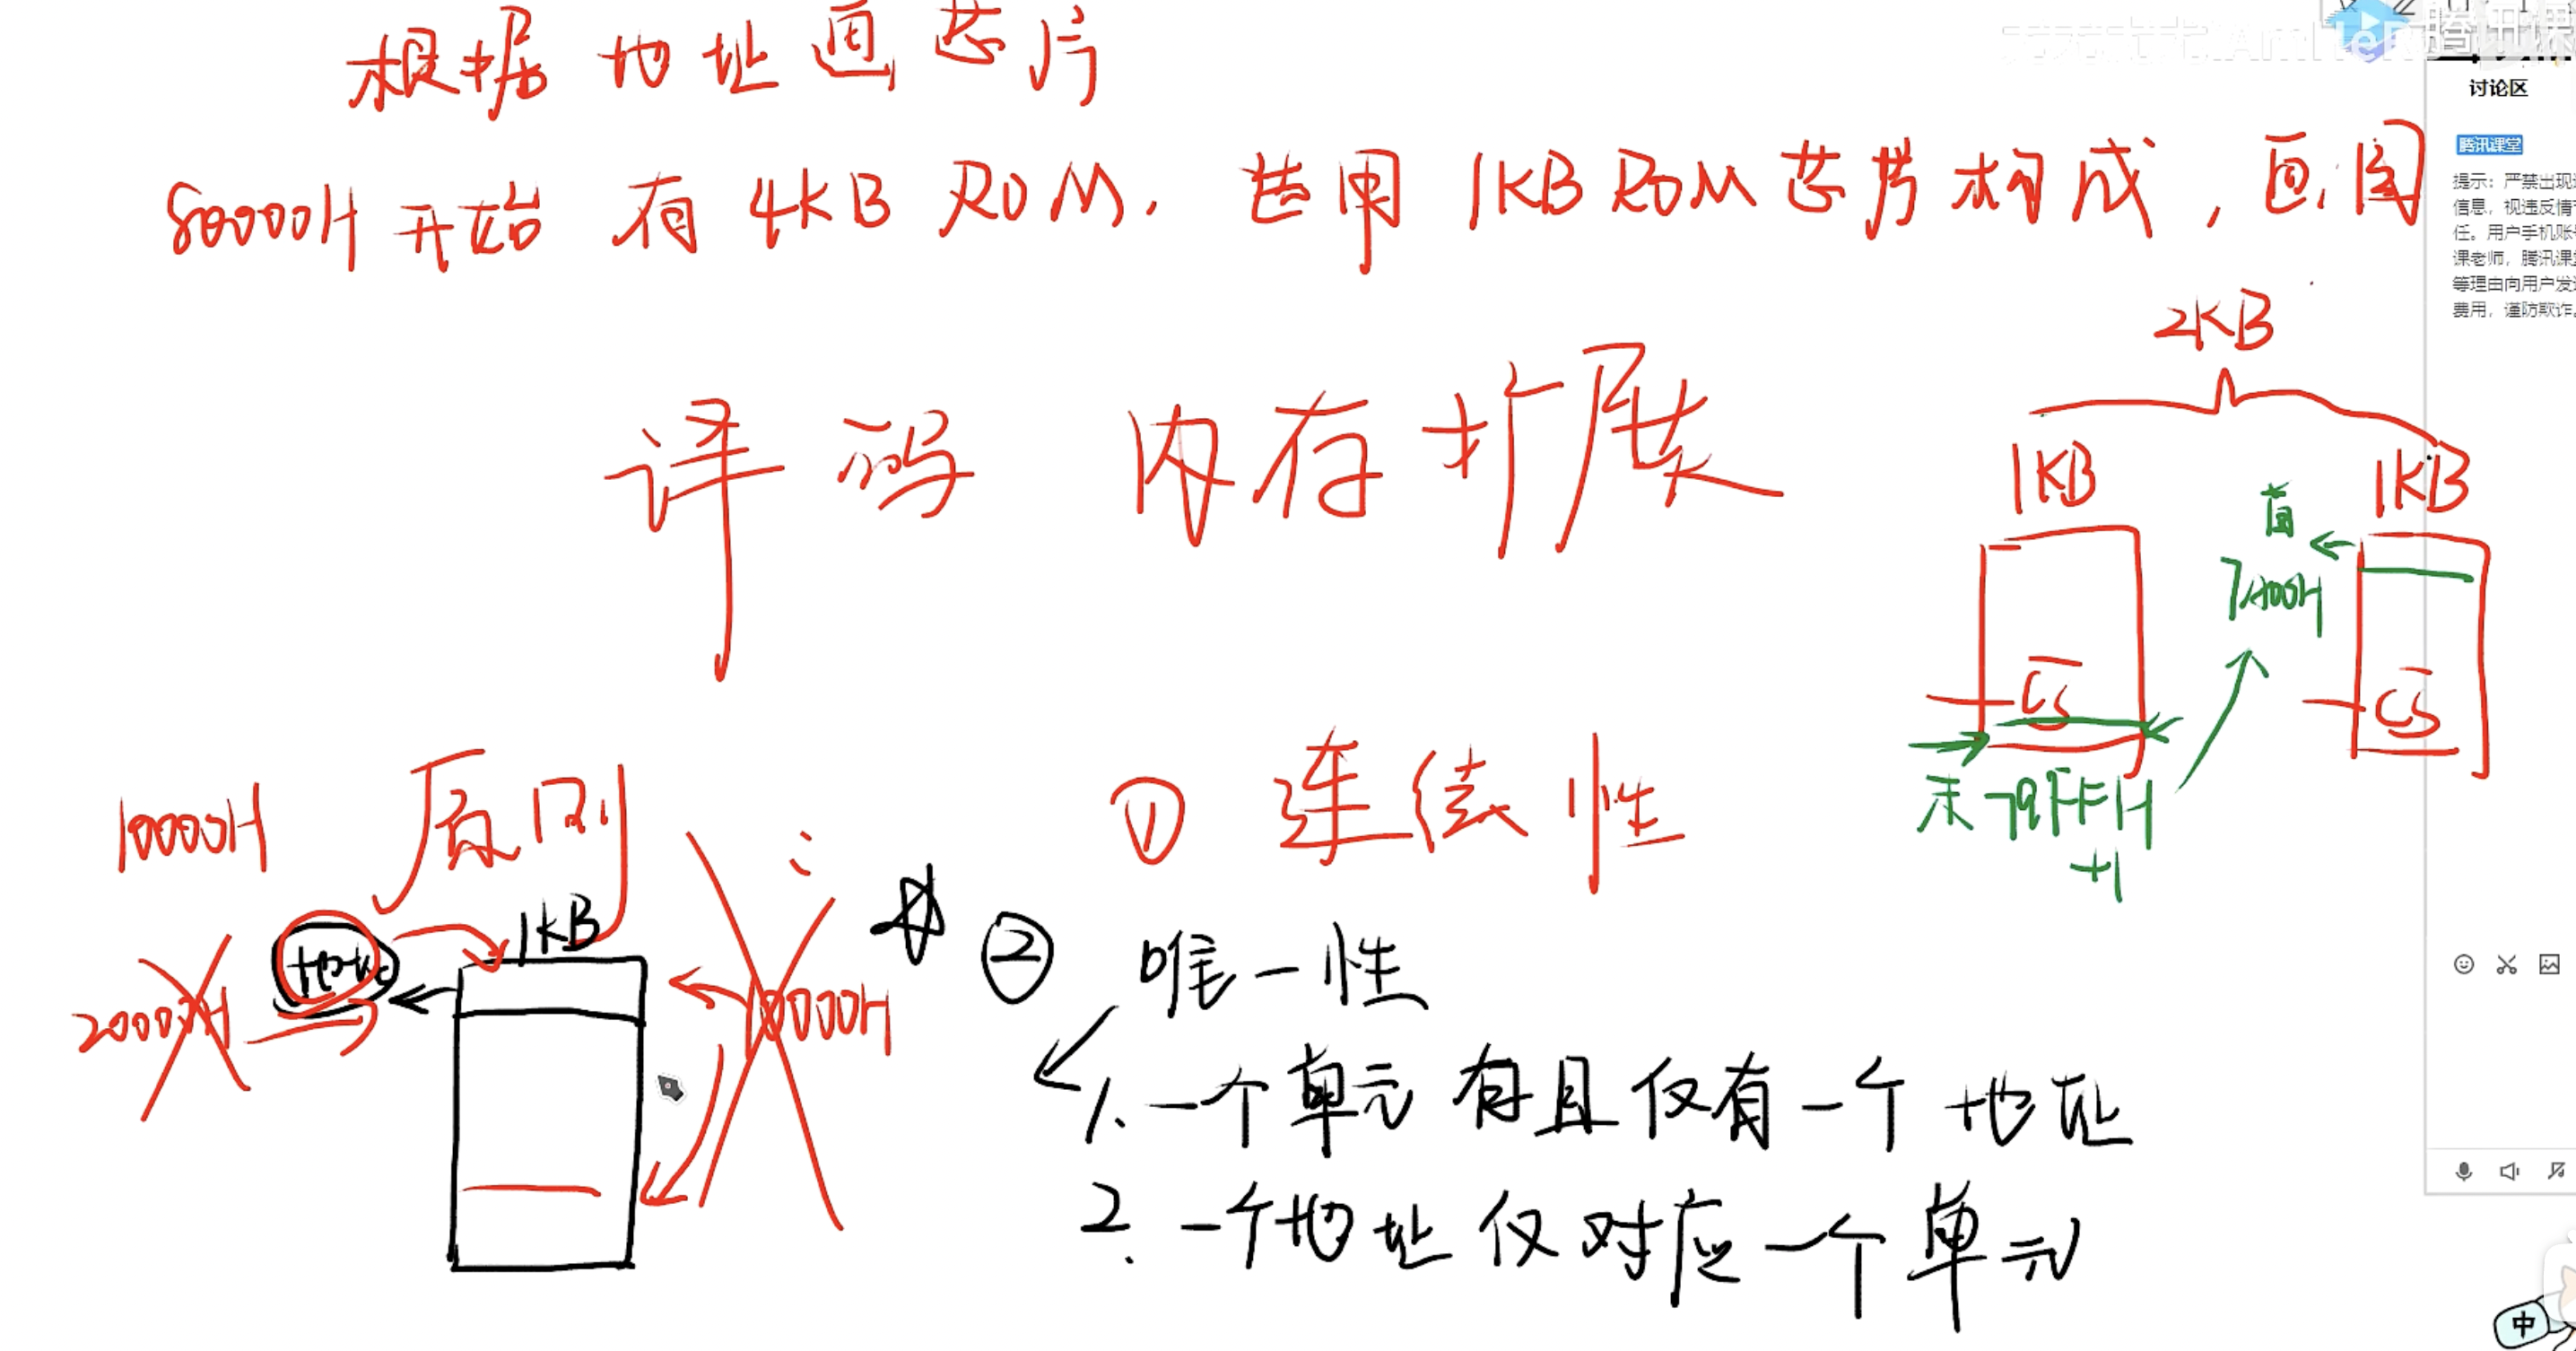 根据地址画芯片
80000H开始有4KB ROM. 若用1KB ROM芯片构成，画图
译码 内存扩展
2KB
1KB
1KB
首
7A00H
CS
CS
末 79FFH
+1
原则
① 连续性
10000H
1KB
地址
20000H
10000H
② 唯一性
1. 一个单元有且仅有一个地址
2. 一个地址仅对应一个单元
腾讯课
讨论区
腾讯课堂
提示：严禁出现
信息，视违反情
任。用户手机账
课老师，腾讯课
等理由向用户发
费用，谨防欺诈
中